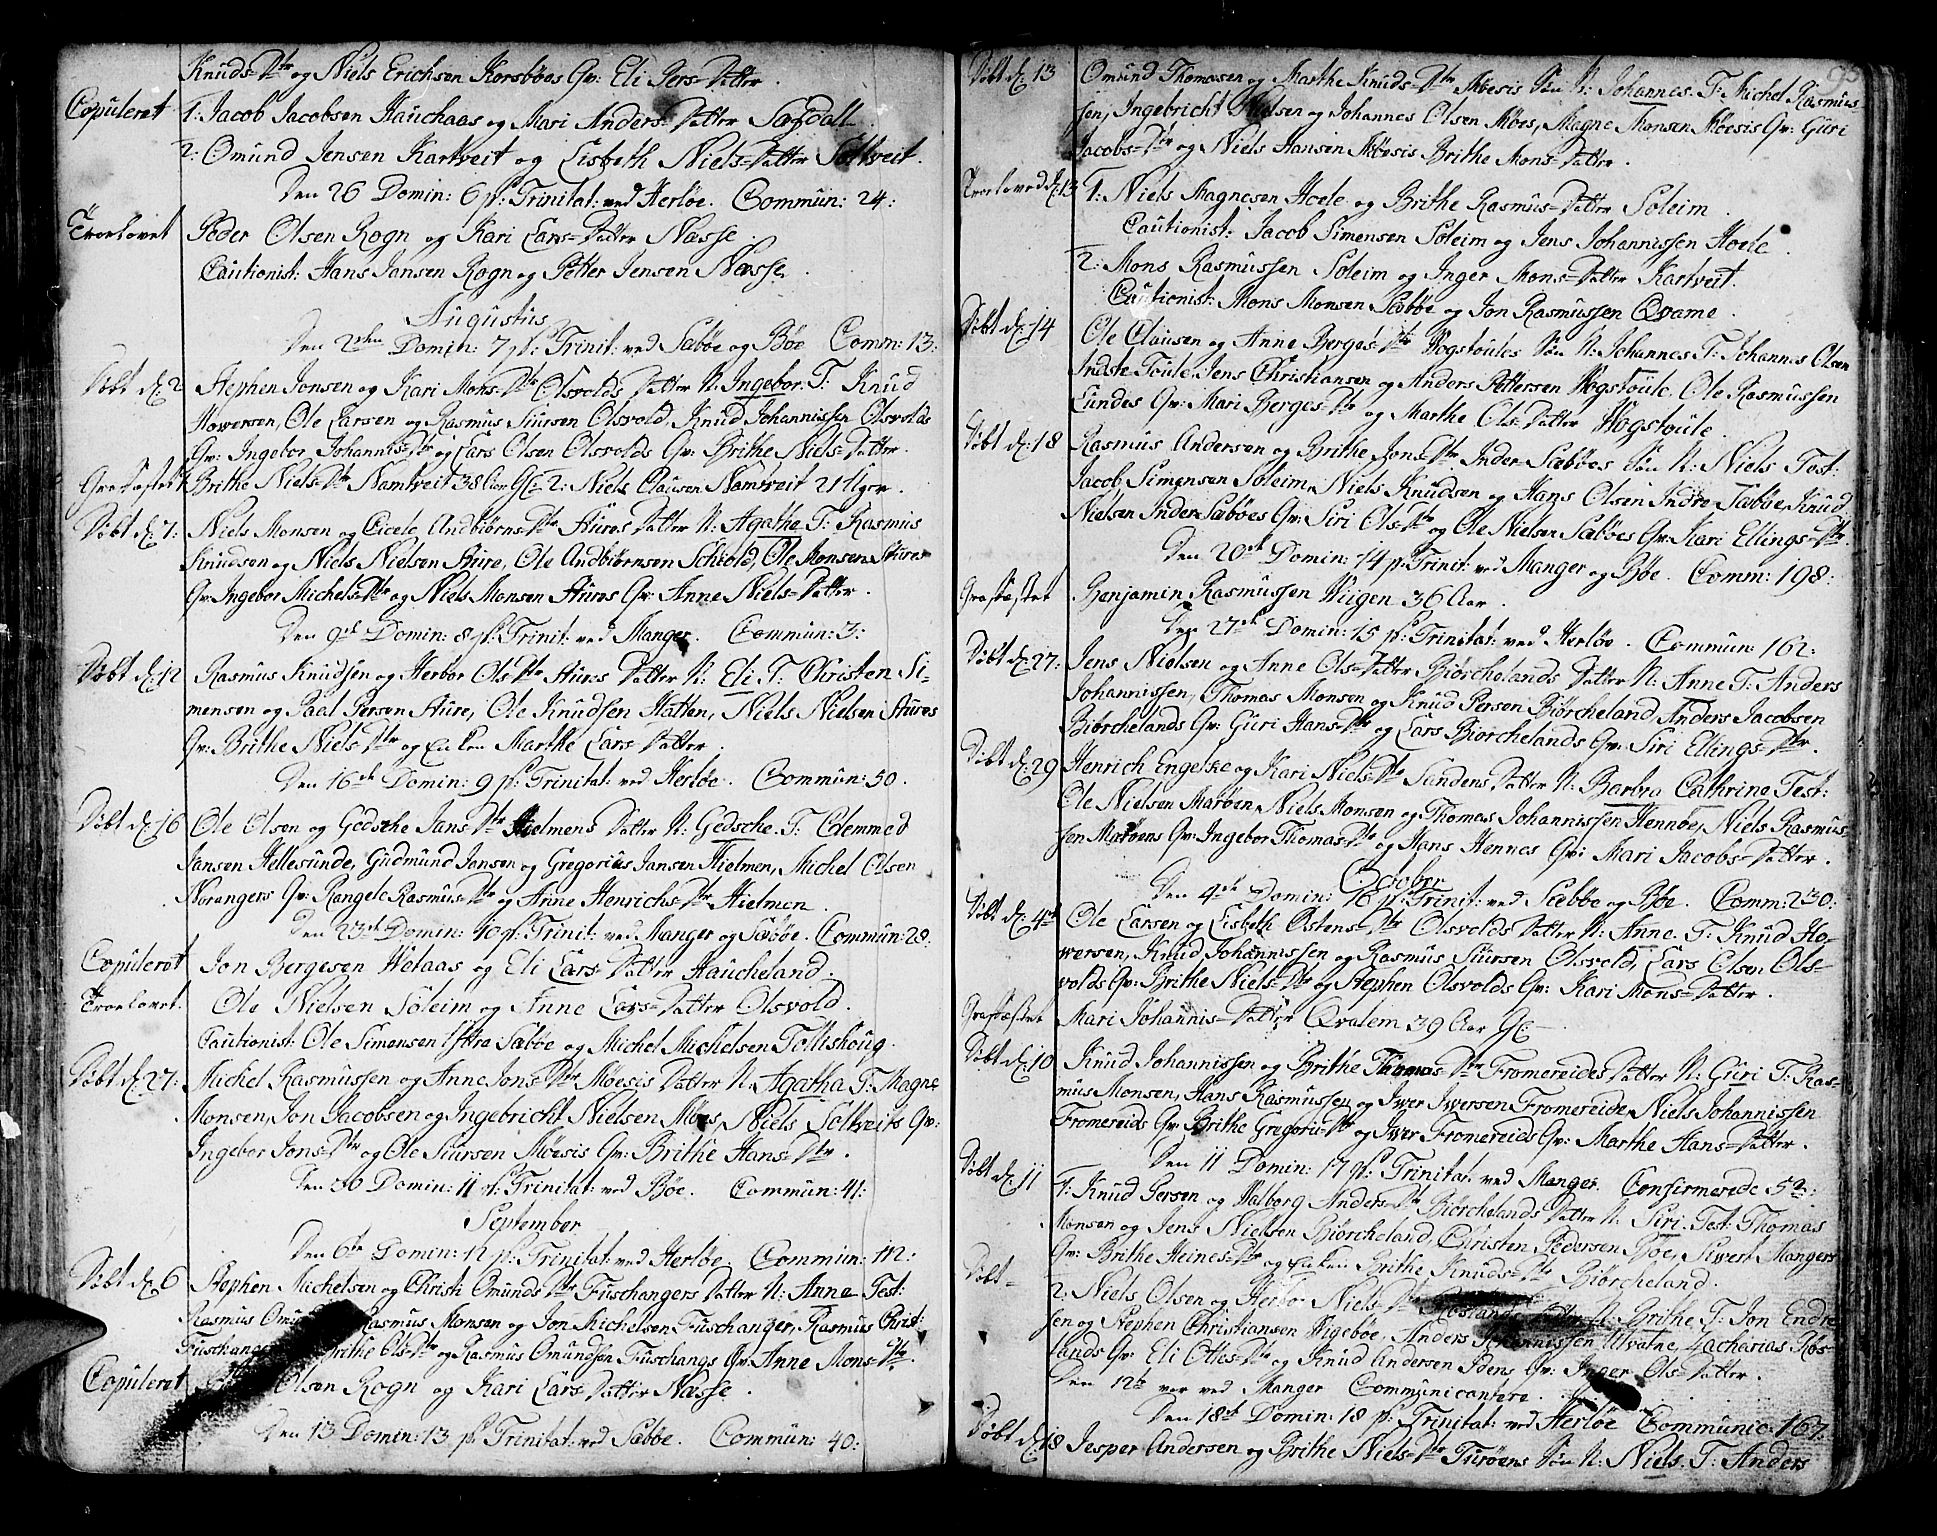 Knuds-Dtr og Niels Erichsen Korsbøes Qv: Eli Pers-Datter.
Copuleret 1: Jacob Jacobsen Hauchaas og Mari Anders-Datter Sagdall
2: Omund Jensen Kartveit og Lisbeth Niels-Datter Soltveit.
Den 26 Domin: 6 p: Trinitat: ved Herløe. Commun: 24:
Troelovet Peder Olsen Rogn og Kari Lars-Datter Næsse.
Cautionist: Hans Jansen Rogn og Petter Jensen Næsse.
Augustus
Den 2den Domin: 7 p: Trinit: ved Sæbøe og Bøe Comm: 13:
Døbt d: 2 Stephen Jonsen og Kari Mons-Dtr Olsvolds Datter N: Ingebor. T: Knud
Howersen, Ole Larsen og Rasmus Siursen Olsvold, Knud Johannissen Olsvolds
Qv: Ingebor Johannis-Dtr og Lars Olsen Olsvolds Qv: Brithe Niels-Datter.
Grafæstet 1: Brithe Niels-Dtr Namtveit 38 Aar 2: Niels Clausen Namtveit 21 Uger.
Døbt d: 7: Niels Monsen og Cicele Andbiørns-Dtr Aures Datter N: Agathe T: Rasmus
Knudsen og Niels Nielsen Aure, Ole Andbiørnsen Schiold, Ole Monsen Aures
Qv: Ingebor Michels-Dtr og Niels Monsen Aures Qv: Anne Niels-Datter.
Den 9de Domin: 8 p: Trinit: ved Manger. Commun: 3:
Døbt d: 12 Rasmus Knudsen og Herbor Ols-Dtr Aures Datter N: Eli T: Christen Si-
mensen og Paal Persen Aure, Ole Knudsen Hatten, Niels Nielsen Aures
Qv: Brithe Niels-Dtr og Enken Marthe Lars-Datter.
Den 16de Domin: 9 p: Trinitat: ved Herløe. Commun: 50.
Døbt d: 16 Ole Olsen og Gedsche Jans-Dtr Hielmens Datter N: Gedsche. T: Edemmed
Jansen Hellesunde, Gudmund Jansen og Gregorius Jansen Hielmen, Michel Olsen
Norangers Qv: Rangele Rasmus-Dtr og Anne Henrichs-Dtr Hielmen.
Den 23de Domin: 10 p: Trinit: ved Manger og Sæbøe. Commun: 28.
Copuleret Jon Bergesen Vetaas og Eli Lars-Datter Haucheland.
Troelovet. Ole Nielsen Soleim og Anne Lars-Datter Olsvold.
Cautionist: Ole Simensen Yttre Sæbøe og Michel Michelsen Tolleshoug.
Døbt d: 27: Michel Rasmussen og Anne Jons-Dtr Møesis Datter N: Agatha T: Magne
Monsen, Jon Jacobsen og Ingebricht Nielsen Møes, Niels Soltveits Qv:
Ingebor Jons-Dtr og Ole Siursen Møesis Qv: Brithe Hans-Dtr.
Den 30 Domin: 11 p: Trinitat: ved Bøe. Commun: 41:
September
Den 6te Domin: 12 p: Trinitat: ved Herløe. Commun: 112:
Døbt d: 6 Stephen Michelsen og Christi Omunds Dtr Fuschangers Datter N: Anne Test:
Rasmus Rasmus Monsen og Jon Michelsen Fuschanger, Rasmus Christ:
Brithe Ols-Dtr og Rasmus Omundsen Fuschangs Qv: Anne Mons-Dtr.
Copuleret Olsen Rogn og Kari Lars-Datter Næsse.
Den 13 Domin: 13 p: Trinitat: ved Sæbøe. Commun: 40:
Døbt d: 13 Omund Thomasen og Marthe Knuds-Dtr Møesis Søn N: Johannes. T: Michel Rasmus-
sen, Ingebricht Nielsen og Johannes Olsen Møes, Magne Monsen Møesis Qv: Guri
Jacobs-Dtr og Niels Hansen Møesis Brithe Mons-Datter.
Troelovede d: 13 1: Niels Magnesen Hoele og Brithe Rasmus-Datter Soleim.
Cautionist: Jacob Simensen Soleim og Jens Johannissen Hoele.
2: Mons Rasmussen Soleim og Inger Mons-Datter Kartveit.
Cautionist: Mons Monsen Sæbøe og Jon Rasmussen Qvame.
Døbt d: 14 Ole Clausen og Anne Berges-Dtr Hogstoules Søn N: Johannes T: Johannes Olsen
Indste Toule, Jens Christiansen og Anders Pettersen Hogstoule, Ole Rasmussen
Lundes Qv: Mari Berges-Dtr og Marthe Ols-Datter Hogstoule.
Døbt d: 18 Rasmus Andersen og Brithe Jons-Dtr Inder-Sæbøes Søn N: Niels Test:
Jacob Simensen Soleim, Niels Knudsen og Hans Olsen Indre Sæbøe, Knud
Nielsen Inder-Sæbøes Qv: Siri Ols-Dtr og Ole Nielsen Sæbøes Qv: Kari Ellings-Dtr.
Den 20de Domin: 14 p: Trinit: ved Manger og Bøe. Comm: 198:
Grafæstet Benjamin Rasmussen Viigen 36 Aar.
Den 27de Domin: 15 p: Trinitat: ved Herløe. Commun: 162:
Døbt d: 27: Jens Nielsen og Anne Ols-Datter Biørchelands Datter N: Anne T: Anders
Johannissen, Thomas Monsen og Knud Persen Biørcheland Anders Jacobsen
Biørchelands Qv: Guri Hans-Dtr og Lars Biørchelands Qv: Siri Ellings-Dtr.
Døbt d: 29 Henrich Engelske og Kari Niels-Dtr Sandens Datter N: Barbra Cathrine Test:
Ole Nielsen Marøen, Niels Monsen og Thomas Johannissen Hennøe, Niels Rasmus-
sen Marøens Qv: Ingebor Thomas-Dtr og Hans Hennes Qv: Mari Jacobs-Datter.
October
Den 4de Domin: 16 p: Trinit: ved Sæbøe og Bøe. Comm: 230:
Døbt d: 4de Ole Larsen og Lisbeth Østens-Dtr Olsvolds Datter N: Anne. T: Knud Ho-
wersen, Knud Johannissen og Rasmus Siursen Olsvold, Lars Olsen Ols-
volds Qv: Brithe Niels-Dtr og Stephen Olsvolds Qv: Kari Mons-Datter.
Grafæstet Mari Johannis-Datter Qvalem 39 Aar
Døbt d: 10 Knud Johannissen og Brithe Thomas-Dtr Fromereides Datter N: Guri T: Ras-
mus Monsen, Hans Rasmussen og Iwer Iwersen Fromereide, Niels Johannissen
Fromereids Qv: Brithe Gregorii-Dtr og Iwer Fromereids Qv: Marthe Hans-Datter.
Den 11 Domin: 17 p: Trinitat: ved Manger. Confirmerede 52:
Døbt d: 11 1: Knud Persen og Valborg Anders-Dtr Biørchelands Datter N: Siri. Test: Thomas
Monsen og Jens Nielsen Biørcheland, Christen Pedersen Bøe, Siwert Mangers
Qv: Brithe Heines-Dtr og Enken Brithe Knuds-Dtr Biørcheland.
Døbt - 2: Niels Olsen og Herbor Niels-Dtr N: Brithe. T: Jon Endre-
sen og Stephen Christiansen Ingebøe, Anders Johannissen Utvatne, Zacharias Røs-
lands Qv: Eli Ottes-Dtr og Knud Andersen Idens Qv: Inger Ols-Datter.
Den 12te var ved Manger Communicantere.
Den 18de Domin: 18 p: Trinitat: ved Herløe Communic: 167.
Døbt d: 18 Jesper Andersen og Brithe Niels-Dtr Turøens Søn N: Niels. T: Anders